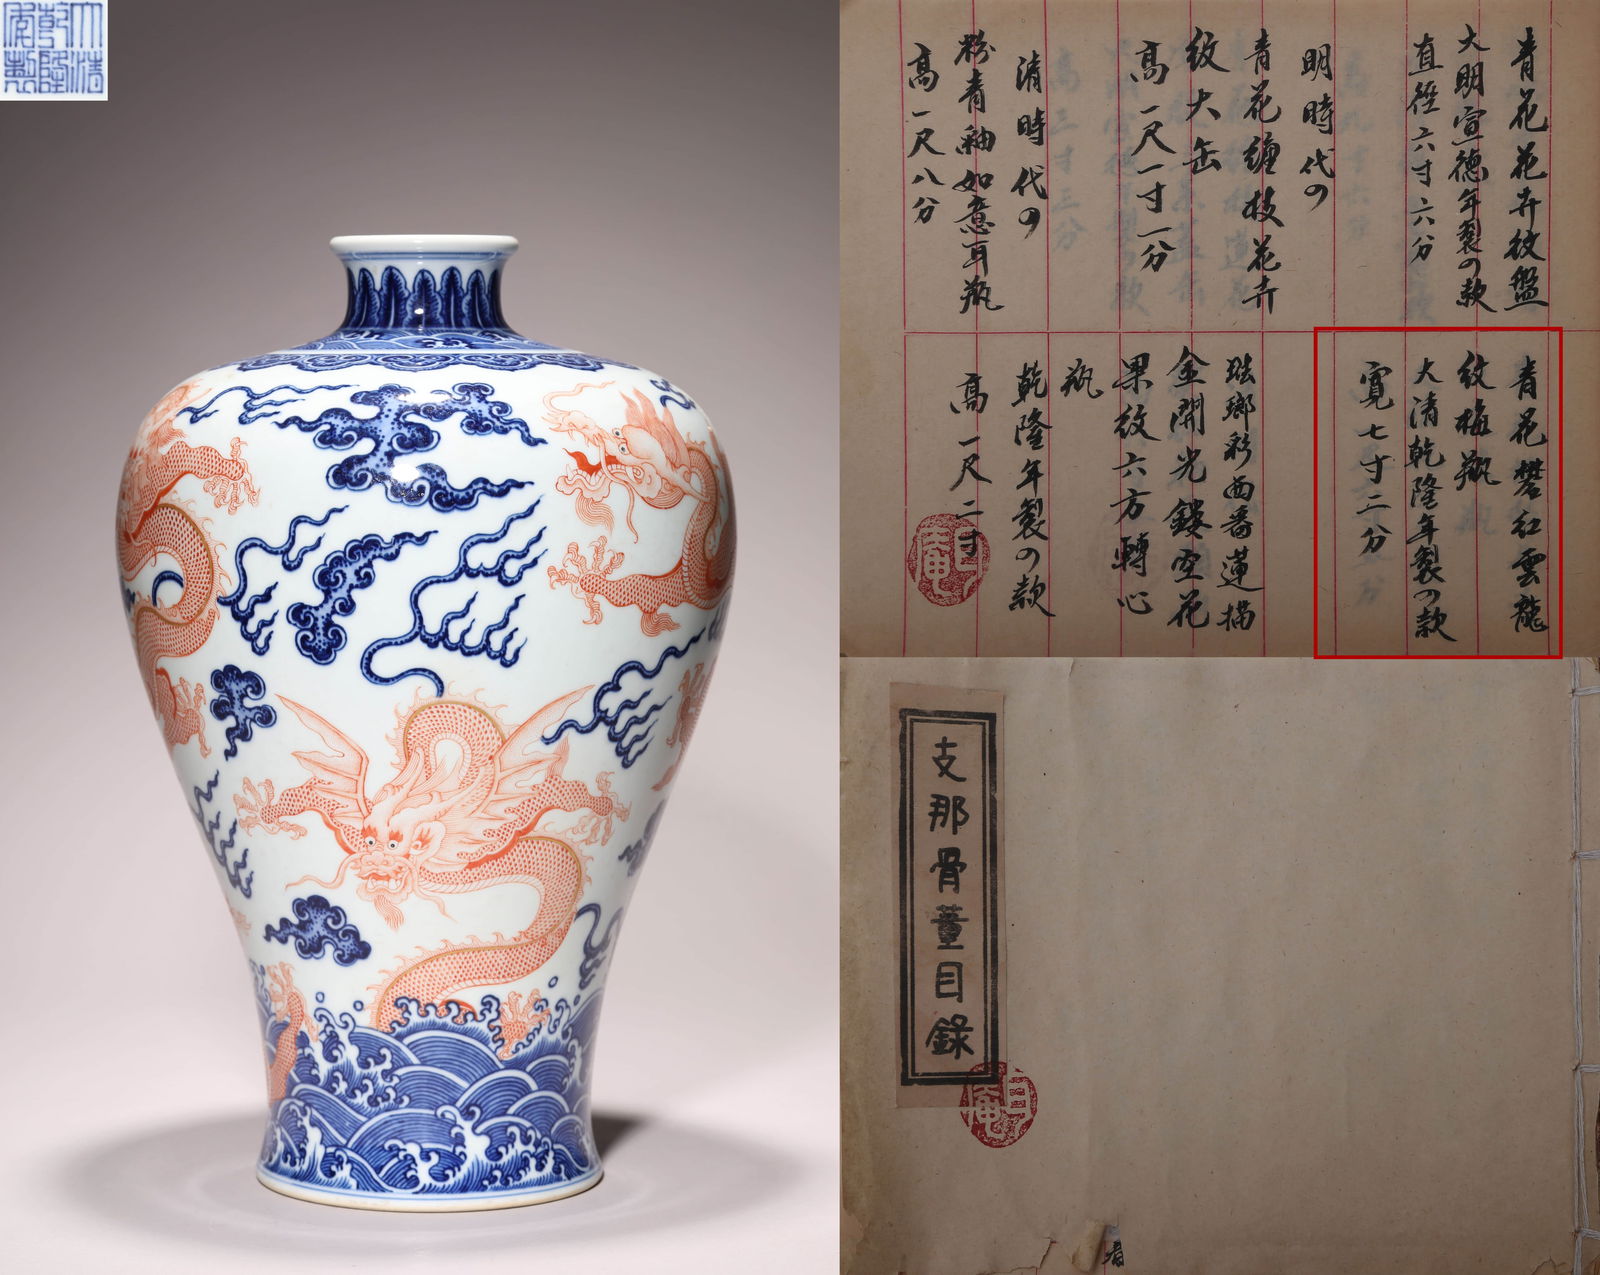 大清
乾隆
年製
青花花卉紋盤
大明宣德年製の款
直徑六寸六分
明時代の
青花纏枝花卉
紋大缶
高一尺一寸一分
清時代の
粉青釉如意耳瓶
高一尺八分
青花礬紅雲龍
紋梅瓶
大清乾隆年製の款
寬七寸二分
琺瑯彩西番蓮描
金開光鏤空花
果紋六方轉心
瓶
乾隆年製の款
高一尺二寸
支那骨董目錄